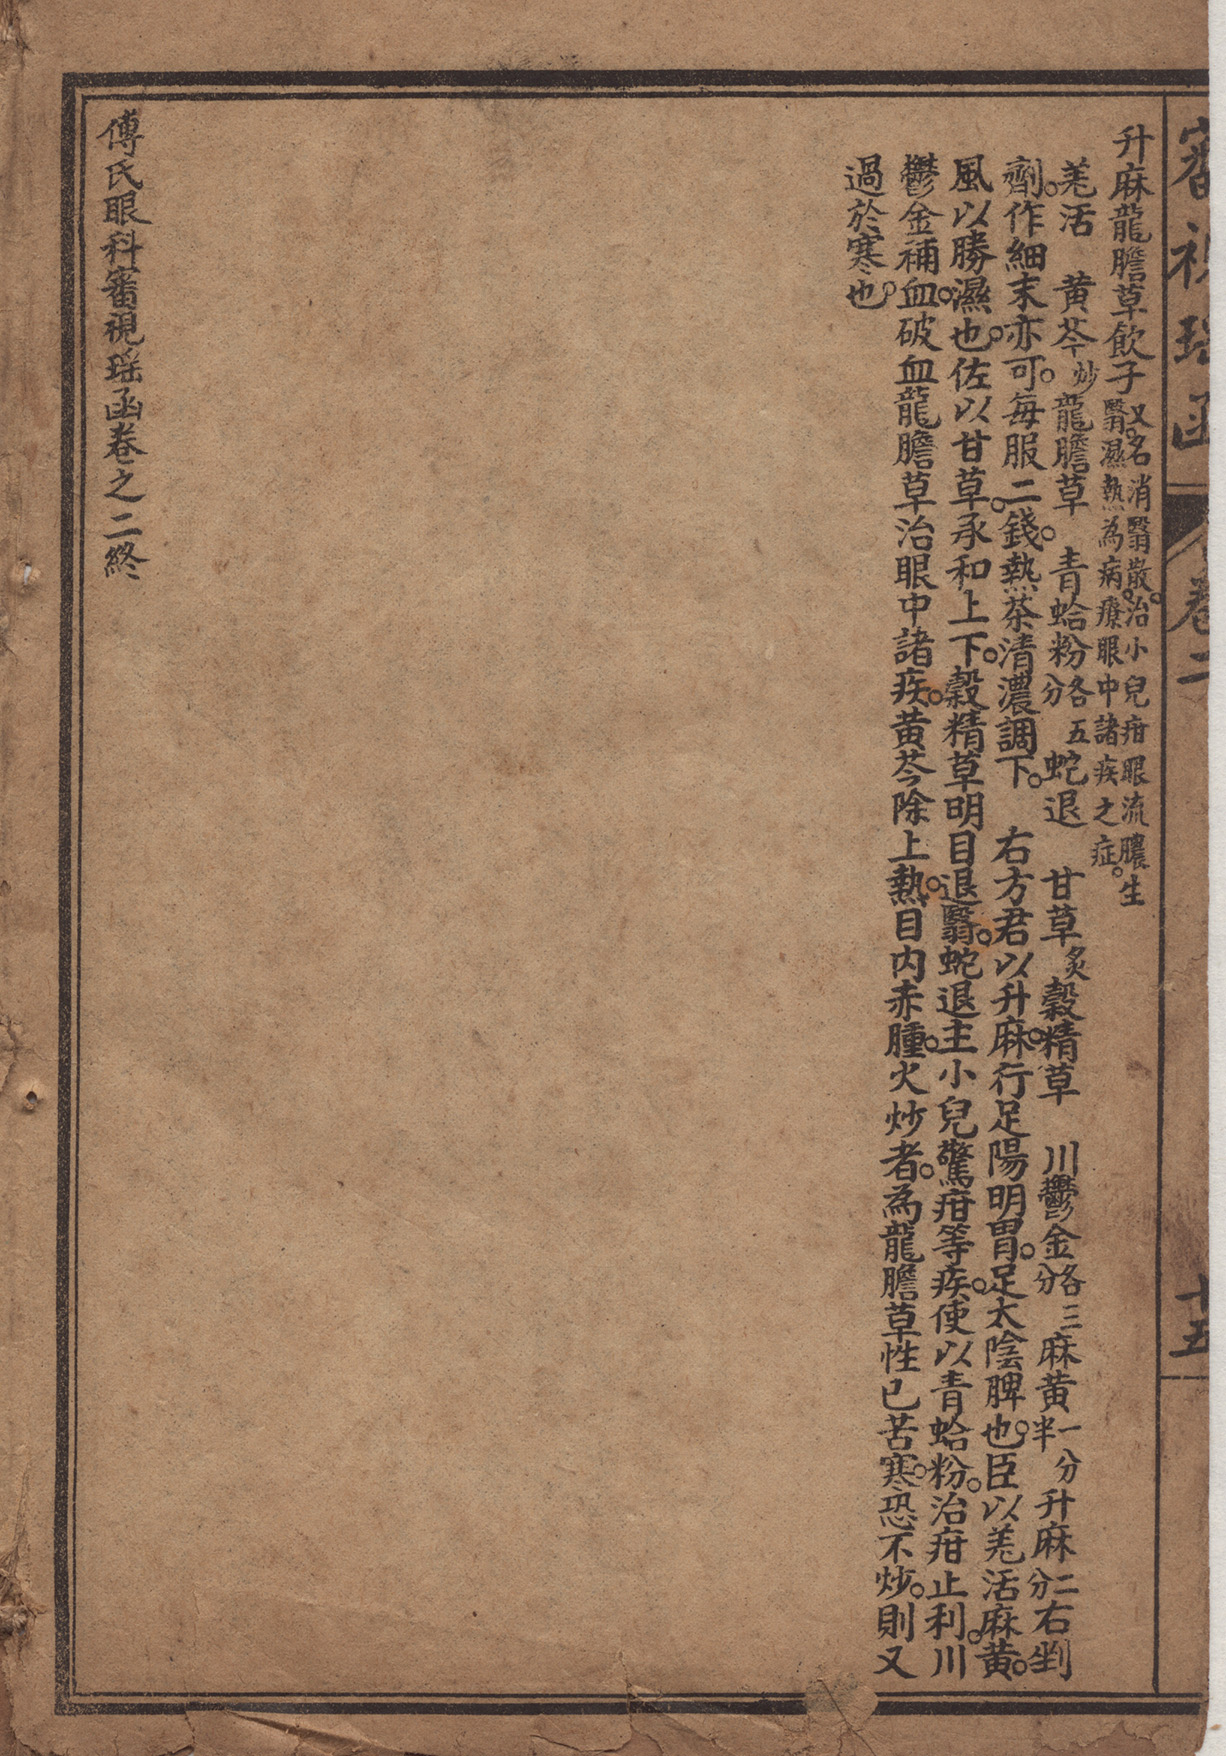 審視瑤函 卷二 十五
升麻龍膽草飲子 又名消翳散。治小兒疳眼流膿生
翳。濕熱為病。療眼中諸疾之症。
羗活 黄芩炒 龍膽草 青蛤粉各五分 蛇退 甘草炙 穀精草 川鬱金各三分 麻黄一分半 升麻二分 右剉
劑。作細末亦可。每服二錢。熱茶清濃調下。 右方君以升麻。行足陽明胃。足太陰脾也。臣以羗活麻黄。
風以勝濕也。佐以甘草。承和上下。穀精草明目退翳。蛇退主小兒驚疳等疾。使以青蛤粉。治疳止利。川
鬱金補血。破血龍膽草治眼中諸疾。黄芩除上熱。目内赤腫。火炒者。為龍膽草性已苦寒。恐不炒。則又
過於寒也。
傅氏眼科審視瑶函卷之二終